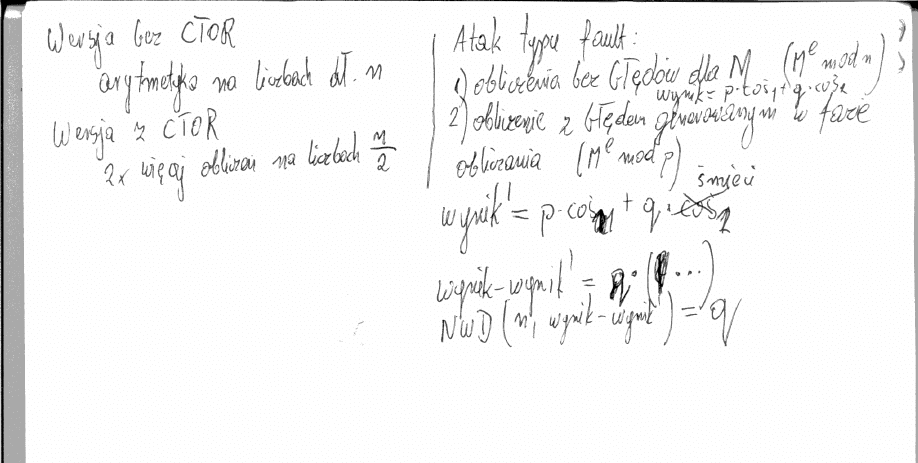 Wersja bez CTOR
arytmetyka na liczbach dł. n
Wersja z CTOR
2x więcej obliczeń na liczbach n/2
Atak typu fault:
1) obliczenia bez błędów dla M (M^e mod n)
wynik = p·coś1 + q·coś2
2) obliczenie z błędem generowanym w fazie
obliczania (M^e mod p)
śmieci
wynik' = p·coś1 + q·coś2
wynik-wynik' = q·( ...)
NWD (n, wynik-wynik') = q